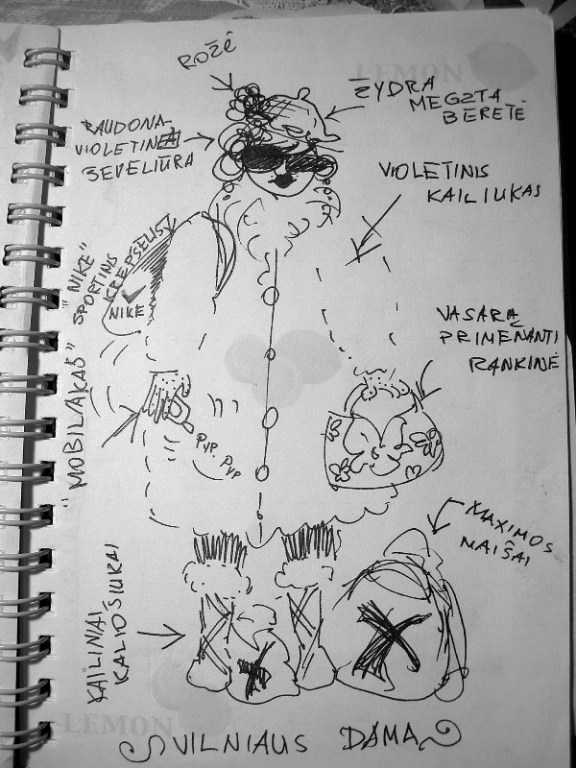 ROŽĖ
LEMON
ŽYDRA
MEGZTA
BERETĖ
RAUDONA-
VIOLETINĖ
ŠEVELIŪRA
VIOLETINIS
KAILIUKAS
"NIKE"
SPORTINIS
KREPŠELIS
NIKE
VASARĄ
PRIMENANTI
RANKINĖ
"MOBILIAKAS"
PYP. PYP
MAXIMOS
MAIŠAI
X
X
KAILINIAI
KALIOŠIUKAI
LEMON
VILNIAUS DAMA